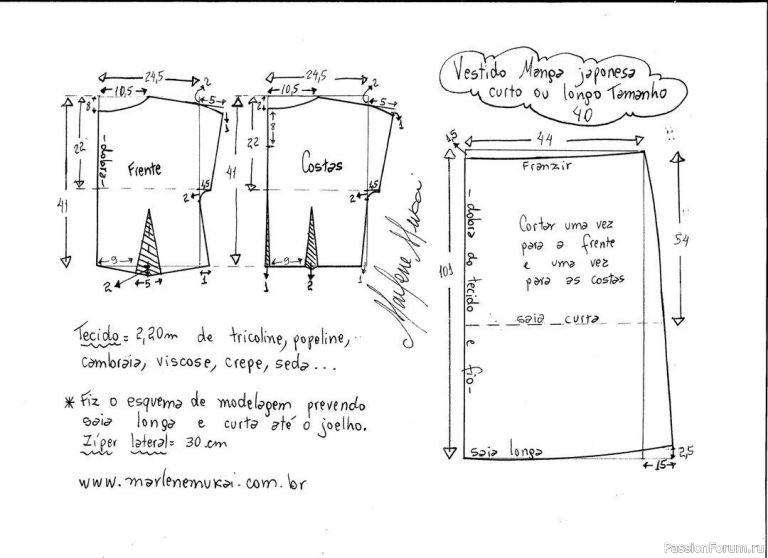 Vestido Manga japonesa
curto ou longo Tamanho
40
24,5
10,5
2
5
8
1
22
41
dobra
Frente
2
4,5
9
5
2
1
24,5
10,5
2
5
2
8
1
22
41
Costas
2
4,5
9
1
2
1
Marlene Mukai
1,5
44
Franzir
101
54
dobra do tecido e fio
Cortar uma vez
para a frente
e uma vez
para as costas
saia curta
saia longa
15
2,5
Tecido = 2,20m de tricoline, popeline,
cambraia, viscose, crepe, seda...
* Fiz o esquema de modelagem prevendo
saia longa e curta até o joelho.
Zíper lateral = 30 cm
www.marlenemukai.com.br
PassionForum.ru